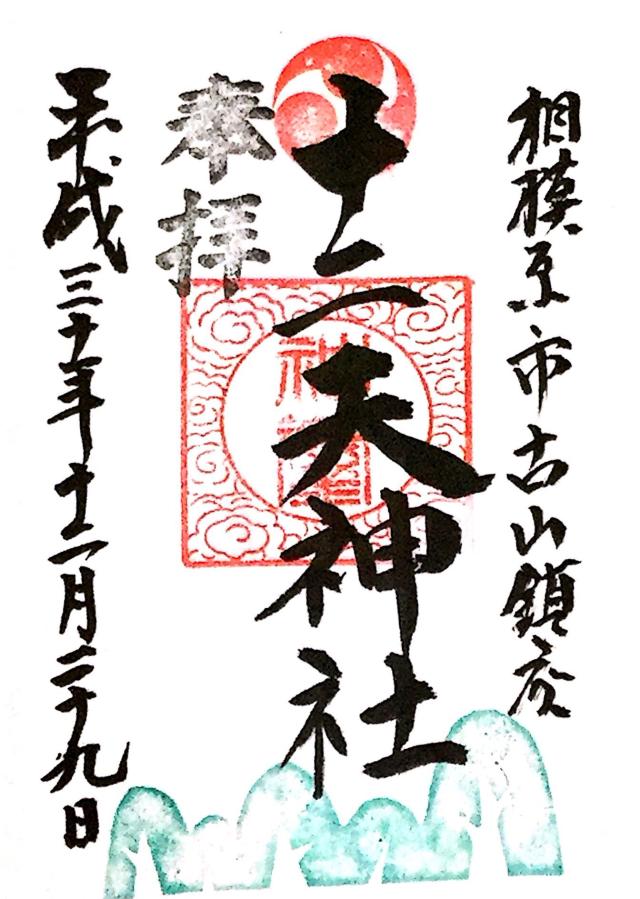 相模原市古山鎮座
十二天神社
奉拝
平成三十年十二月二十九日